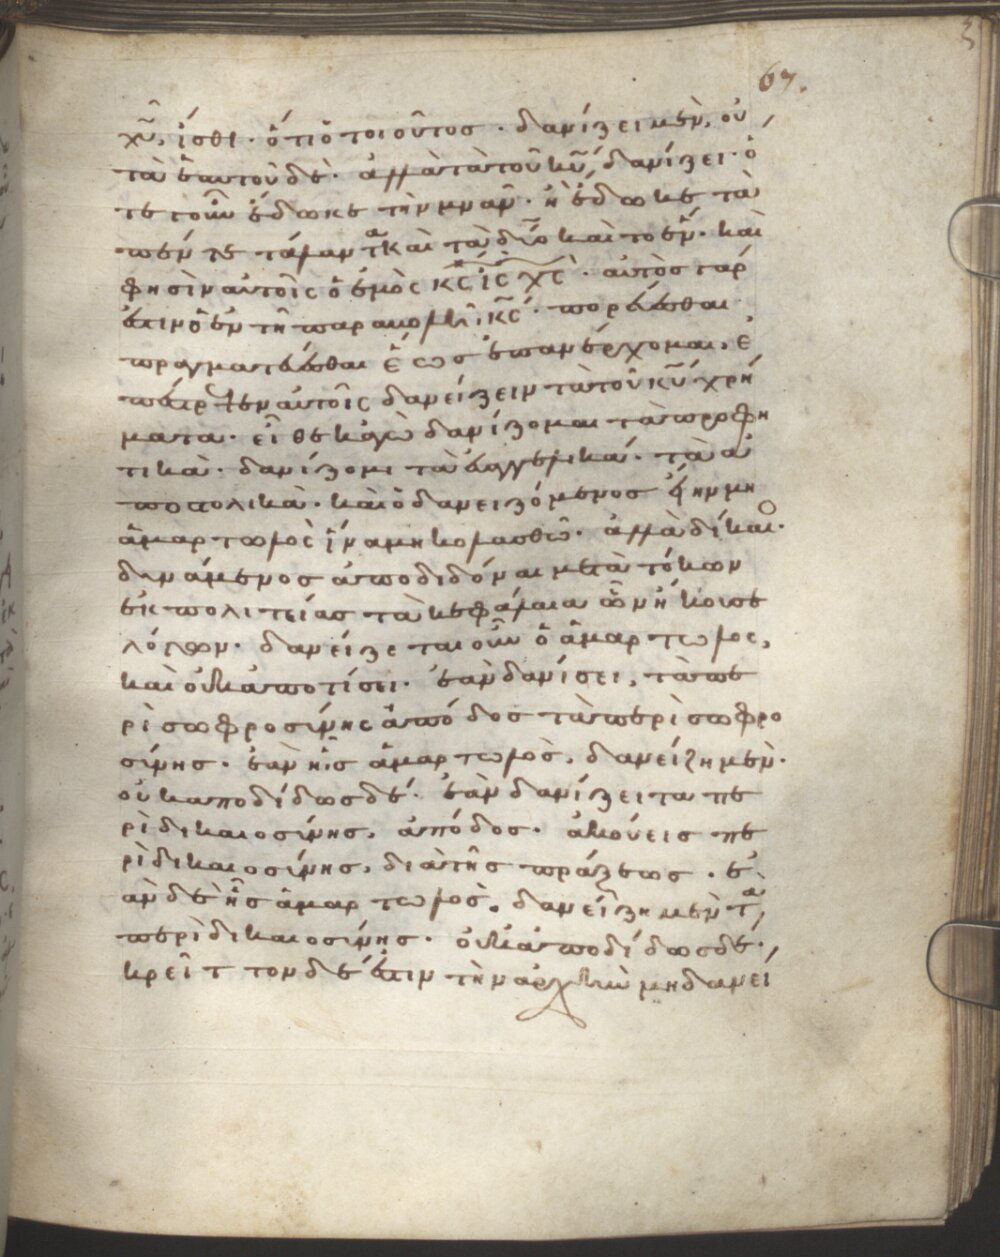 67.
χυ, ἴσθι · ὅτι ὁ τοιοῦτος · δανίζει μὲν, οὐ
τὰ ἑαυτοῦ δὲ · ἀλλὰ τὰ τοῦ κυ, δανίζει · ὅ
τε γοῦν ἔδωκε τὴν μνᾶν · ἢ ἔδωκε τὰ
πέντε τάλαντα καὶ τὰ δύο καὶ τὸ ἕν · καὶ
φησὶν αὐτοῖς ὁ ἐμὸς κς ις χς · αὐτὸς γάρ
ἐστιν ὁ ἐν τῆ παραβολῆ, κς · πορεύεσθαι
πραγματεύεσθαι ἕως ἐπανέρχομαι, ἐ
πέτρεπεν αὐτοῖς δανείζειν τὰ τοῦ κυ χρή
ματα · εἴθε κἀγὼ δανίζομαι τὰ προφη
τικὰ · δανίζομε τὰ εὐαγγελικά · τὰ ἀ
ποστολικὰ · καὶ ὁ δανειζόμενος εἴην μὴ
ἁμαρτωλὸς ἵνα μὴ κολασθῶ · ἀλλὰ δίκαιο ·
δυνάμενος ἀποδιδόναι μετὰ τόκων
ἐκ πολιτείας τὰ κεφάλαια ὧν ἤκουσε
λόγων · δανείζεται οὖν ὁ ἁμαρτωλος,
καὶ οὐκ ἀποτίσει · ἐὰν δανίσει, τὰ πε
ρὶ σωφροσύνης ἀπόδος τὰ περὶ σωφρο
σύνης · ἐὰν ἦς ἁμαρτωλὸς, δανείζη μὲν ·
οὐκ αποδίδως δέ · ἐὰν δανίζει τα πε
ρὶ δικαιοσύνης, ἀπόδος · ἀκούεις πε
ρὶ δικαιοσύνης, διὰ τῆς πράξεως · ἐ
ὰν δὲ ἦς ἁμαρτωλὸς, δανείζη μὲν τὰ
περὶ δικαιοσύνης · οὐκ ἀποδίδως δέ ·
κρεῖττον δέ ἐστιν τὴν ἀρχὴν μὴ δανεί